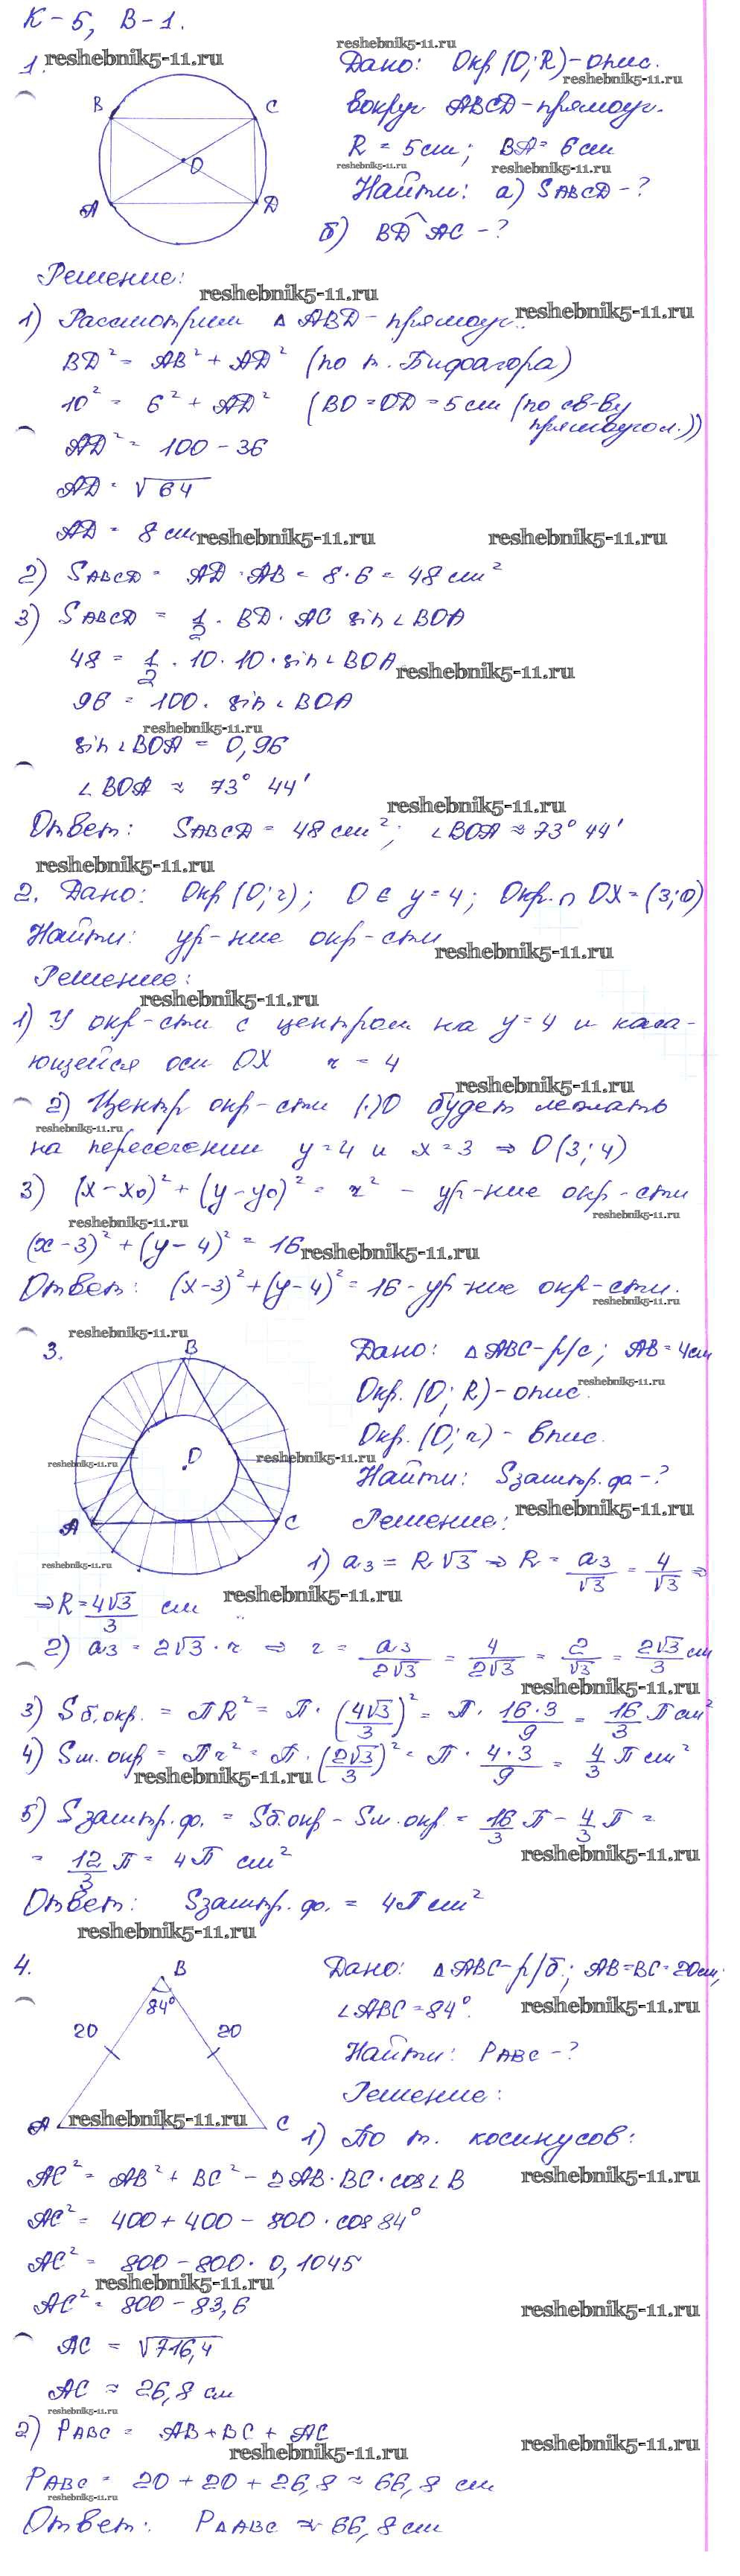 К-5, В-1.
reshebnik5-11.ru
reshebnik5-11.ru
1.
Дано: Окр (O; R) - опис.
reshebnik5-11.ru
B
C
O
A
D
вокруг ABCD - прямоуг.
R = 5 см; BA = 6 см
reshebnik5-11.ru
reshebnik5-11.ru
Найти: а) SABCD - ?
б) BD^AC - ?
Решение:
reshebnik5-11.ru
reshebnik5-11.ru
1) Рассмотрим ΔABD - прямоуг.
BD² = AB² + AD² (по т. Пифагора)
10² = 6² + AD² (BO = OD = 5 см (по св-ву
прямоугол.))
AD² = 100 - 36
AD = √64
AD = 8 см
reshebnik5-11.ru
reshebnik5-11.ru
2) SABCD = AD · AB = 8 · 6 = 48 см²
3) SABCD = 1/2 · BD · AC sin∠BOA
48 = 1/2 · 10 · 10 · sin∠BOA
reshebnik5-11.ru
96 = 100 · sin∠BOA
reshebnik5-11.ru
sin∠BOA = 0,96
∠BOA ≈ 73° 44'
reshebnik5-11.ru
Ответ: SABCD = 48 см²; ∠BOA ≈ 73° 44'
reshebnik5-11.ru
2. Дано: Окр (O; r); O ∈ y = 4; Окр. ∩ OX = (3; 0)
Найти: ур-ние окр-сти
reshebnik5-11.ru
Решение:
reshebnik5-11.ru
1) У окр-сти с центром на y = 4 и каса-
ющейся оси OX r = 4
reshebnik5-11.ru
2) Центр окр-сти (·)O будет лежать
reshebnik5-11.ru
на пересечении y = 4 и x = 3 ⇒ O(3; 4)
3) (x - x0)² + (y - y0)² = r² - ур-ние окр-сти
reshebnik5-11.ru
reshebnik5-11.ru
(x - 3)² + (y - 4)² = 16
reshebnik5-11.ru
Ответ: (x - 3)² + (y - 4)² = 16 - ур-ние окр-сти.
reshebnik5-11.ru
reshebnik5-11.ru
3.
B
O
A
C
reshebnik5-11.ru
reshebnik5-11.ru
Дано: ΔABC - р/с; AB = 4 см
reshebnik5-11.ru
Окр. (O; R) - опис.
Окр. (O; r) - впис.
Найти: Sзаштр. ф. - ?
reshebnik5-11.ru
Решение:
reshebnik5-11.ru
1) a3 = R√3 ⇒ R = a3/√3 = 4/√3 ⇒
⇒ R = 4√3/3 см
reshebnik5-11.ru
2) a3 = 2√3 · r ⇒ r = a3/2√3 = 4/2√3 = 2/√3 = 2√3/3 см
reshebnik5-11.ru
3) Sб. окр. = ПR² = П · (4√3/3)² = П · 16·3/9 = 16/3 П см²
4) Sм. окр = Пr² = П · (2√3/3)² = П · 4·3/9 = 4/3 П см²
reshebnik5-11.ru
5) Sзаштр. ф. = Sб. окр - Sм. окр = 16/3 П - 4/3 П =
reshebnik5-11.ru
= 12/3 П = 4П см²
Ответ: Sзаштр. ф. = 4П см²
reshebnik5-11.ru
4.
B
84°
20
20
A
C
reshebnik5-11.ru
Дано: ΔABC - р/б; AB = BC = 20 см;
∠ABC = 84°.
reshebnik5-11.ru
Найти: PABC - ?
Решение:
1) По т. косинусов:
AC² = AB² + BC² - 2AB · BC · cos∠B
reshebnik5-11.ru
AC² = 400 + 400 - 800 · cos 84°
AC² = 800 - 800 · 0,1045
reshebnik5-11.ru
AC² = 800 - 83,6
reshebnik5-11.ru
AC = √716,4
AC ≈ 26,8 см
reshebnik5-11.ru
2) PABC = AB + BC + AC
reshebnik5-11.ru
reshebnik5-11.ru
PABC = 20 + 20 + 26,8 ≈ 66,8 см
reshebnik5-11.ru
Ответ: PΔABC ≈ 66,8 см